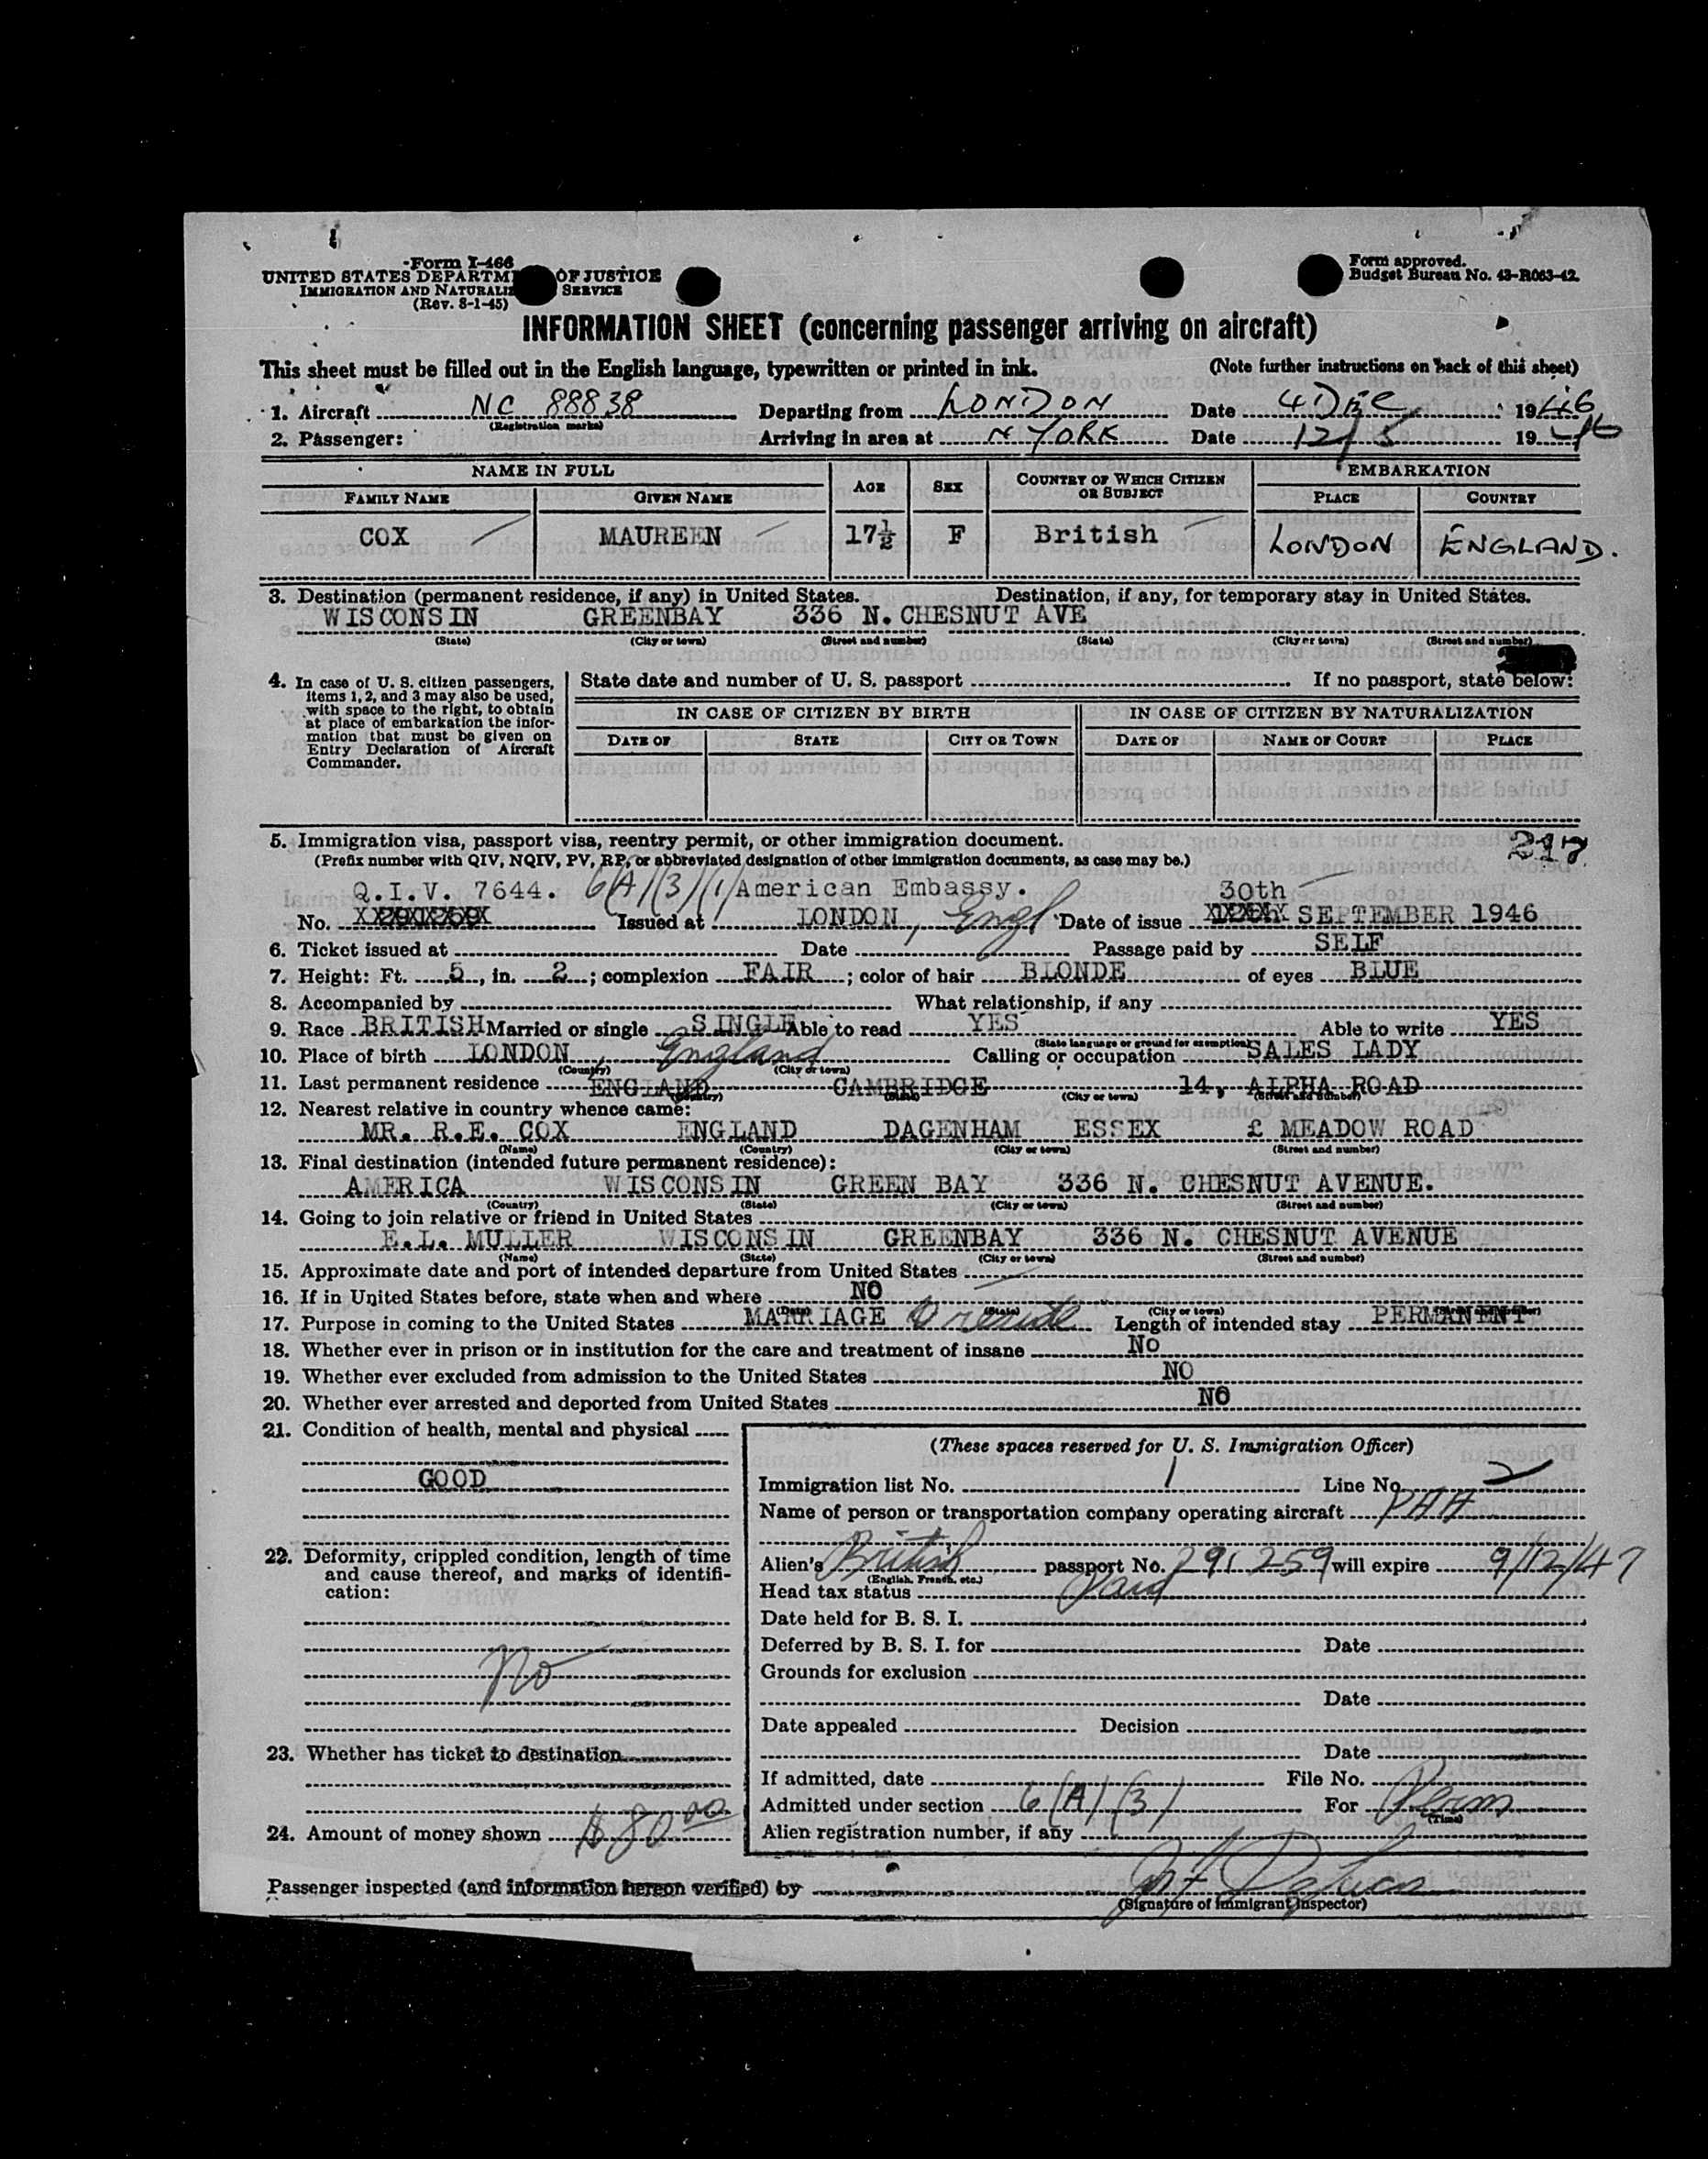 Form I-466
UNITED STATES DEPARTM OF JUSTICE
IMMIGRATION AND NATURALI SERVICE
(Rev. 8-1-45)
Form approved.
Budget Bureau No. 43-R063-42.
INFORMATION SHEET (concerning passenger arriving on aircraft)
This sheet must be filled out in the English language, typewritten or printed in ink. (Note further instructions on back of this sheet)
1. Aircraft NC 88838 Departing from LONDON Date 4 DEC 1946
(Registration marks)
2. Passenger: Arriving in area at N YORK Date 12/5 1946
NAME IN FULL AGE SEX COUNTRY OF WHICH CITIZEN OR SUBJECT EMBARKATION
FAMILY NAME GIVEN NAME PLACE COUNTRY
COX MAUREEN 17½ F British LONDON ENGLAND.
3. Destination (permanent residence, if any) in United States. Destination, if any, for temporary stay in United States.
WISCONSIN GREENBAY 336 N. CHESNUT AVE
(State) (City or town) (Street and number) (State) (City or town) (Street and number)
4. In case of U. S. citizen passengers, items 1, 2, and 3 may also be used, with space to the right, to obtain at place of embarkation the information that must be given on Entry Declaration of Aircraft Commander.
State date and number of U. S. passport If no passport, state below:
IN CASE OF CITIZEN BY BIRTH IN CASE OF CITIZEN BY NATURALIZATION
DATE OF STATE CITY OR TOWN DATE OF NAME OF COURT PLACE
5. Immigration visa, passport visa, reentry permit, or other immigration document. 217
(Prefix number with QIV, NQIV, PV, RP, or abbreviated designation of other immigration documents, as case may be.)
Q.I.V. 7644. 6(A)(3)(1) American Embassy. 30th
No. Issued at LONDON, Engl Date of issue SEPTEMBER 1946
6. Ticket issued at Date Passage paid by SELF
7. Height: Ft. 5, in. 2; complexion FAIR; color of hair BLONDE of eyes BLUE
8. Accompanied by What relationship, if any
9. Race BRITISH Married or single SINGLE Able to read YES Able to write YES
(State language or ground for exemption)
10. Place of birth LONDON, England Calling or occupation SALES LADY
(Country) (City or town)
11. Last permanent residence ENGLAND CAMBRIDGE 14, ALPHA ROAD
(Country) (State) (City or town) (Street and number)
12. Nearest relative in country whence came:
MR. R.E. COX ENGLAND DAGENHAM ESSEX £ MEADOW ROAD
(Name) (Country) (City or town) (Street and number)
13. Final destination (intended future permanent residence):
AMERICA WISCONSIN GREEN BAY 336 N. CHESNUT AVENUE.
(Country) (State) (City or town) (Street and number)
14. Going to join relative or friend in United States
E.L. MULLER WISCONSIN GREENBAY 336 N. CHESNUT AVENUE
(Name) (State) (City or town) (Street and number)
15. Approximate date and port of intended departure from United States
16. If in United States before, state when and where NO
(Date) (State) (City or town) (Street and number)
17. Purpose in coming to the United States MARRIAGE reside Length of intended stay PERMANENT
18. Whether ever in prison or in institution for the care and treatment of insane No
19. Whether ever excluded from admission to the United States NO
20. Whether ever arrested and deported from United States NO
21. Condition of health, mental and physical
GOOD
22. Deformity, crippled condition, length of time and cause thereof, and marks of identification:
No
23. Whether has ticket to destination
24. Amount of money shown $80 00
(These spaces reserved for U. S. Immigration Officer)
Immigration list No. 1 Line No. 2
Name of person or transportation company operating aircraft PAA
Alien's British passport No. 291259 will expire 9/12/47
(English, French, etc.)
Head tax status Paid
Date held for B. S. I.
Deferred by B. S. I. for Date
Grounds for exclusion
Date
Date appealed Decision
Date
If admitted, date File No.
Admitted under section 6(A)(3) For Perm
(Time)
Alien registration number, if any
Passenger inspected (and information hereon verified) by
(Signature of Immigrant Inspector)